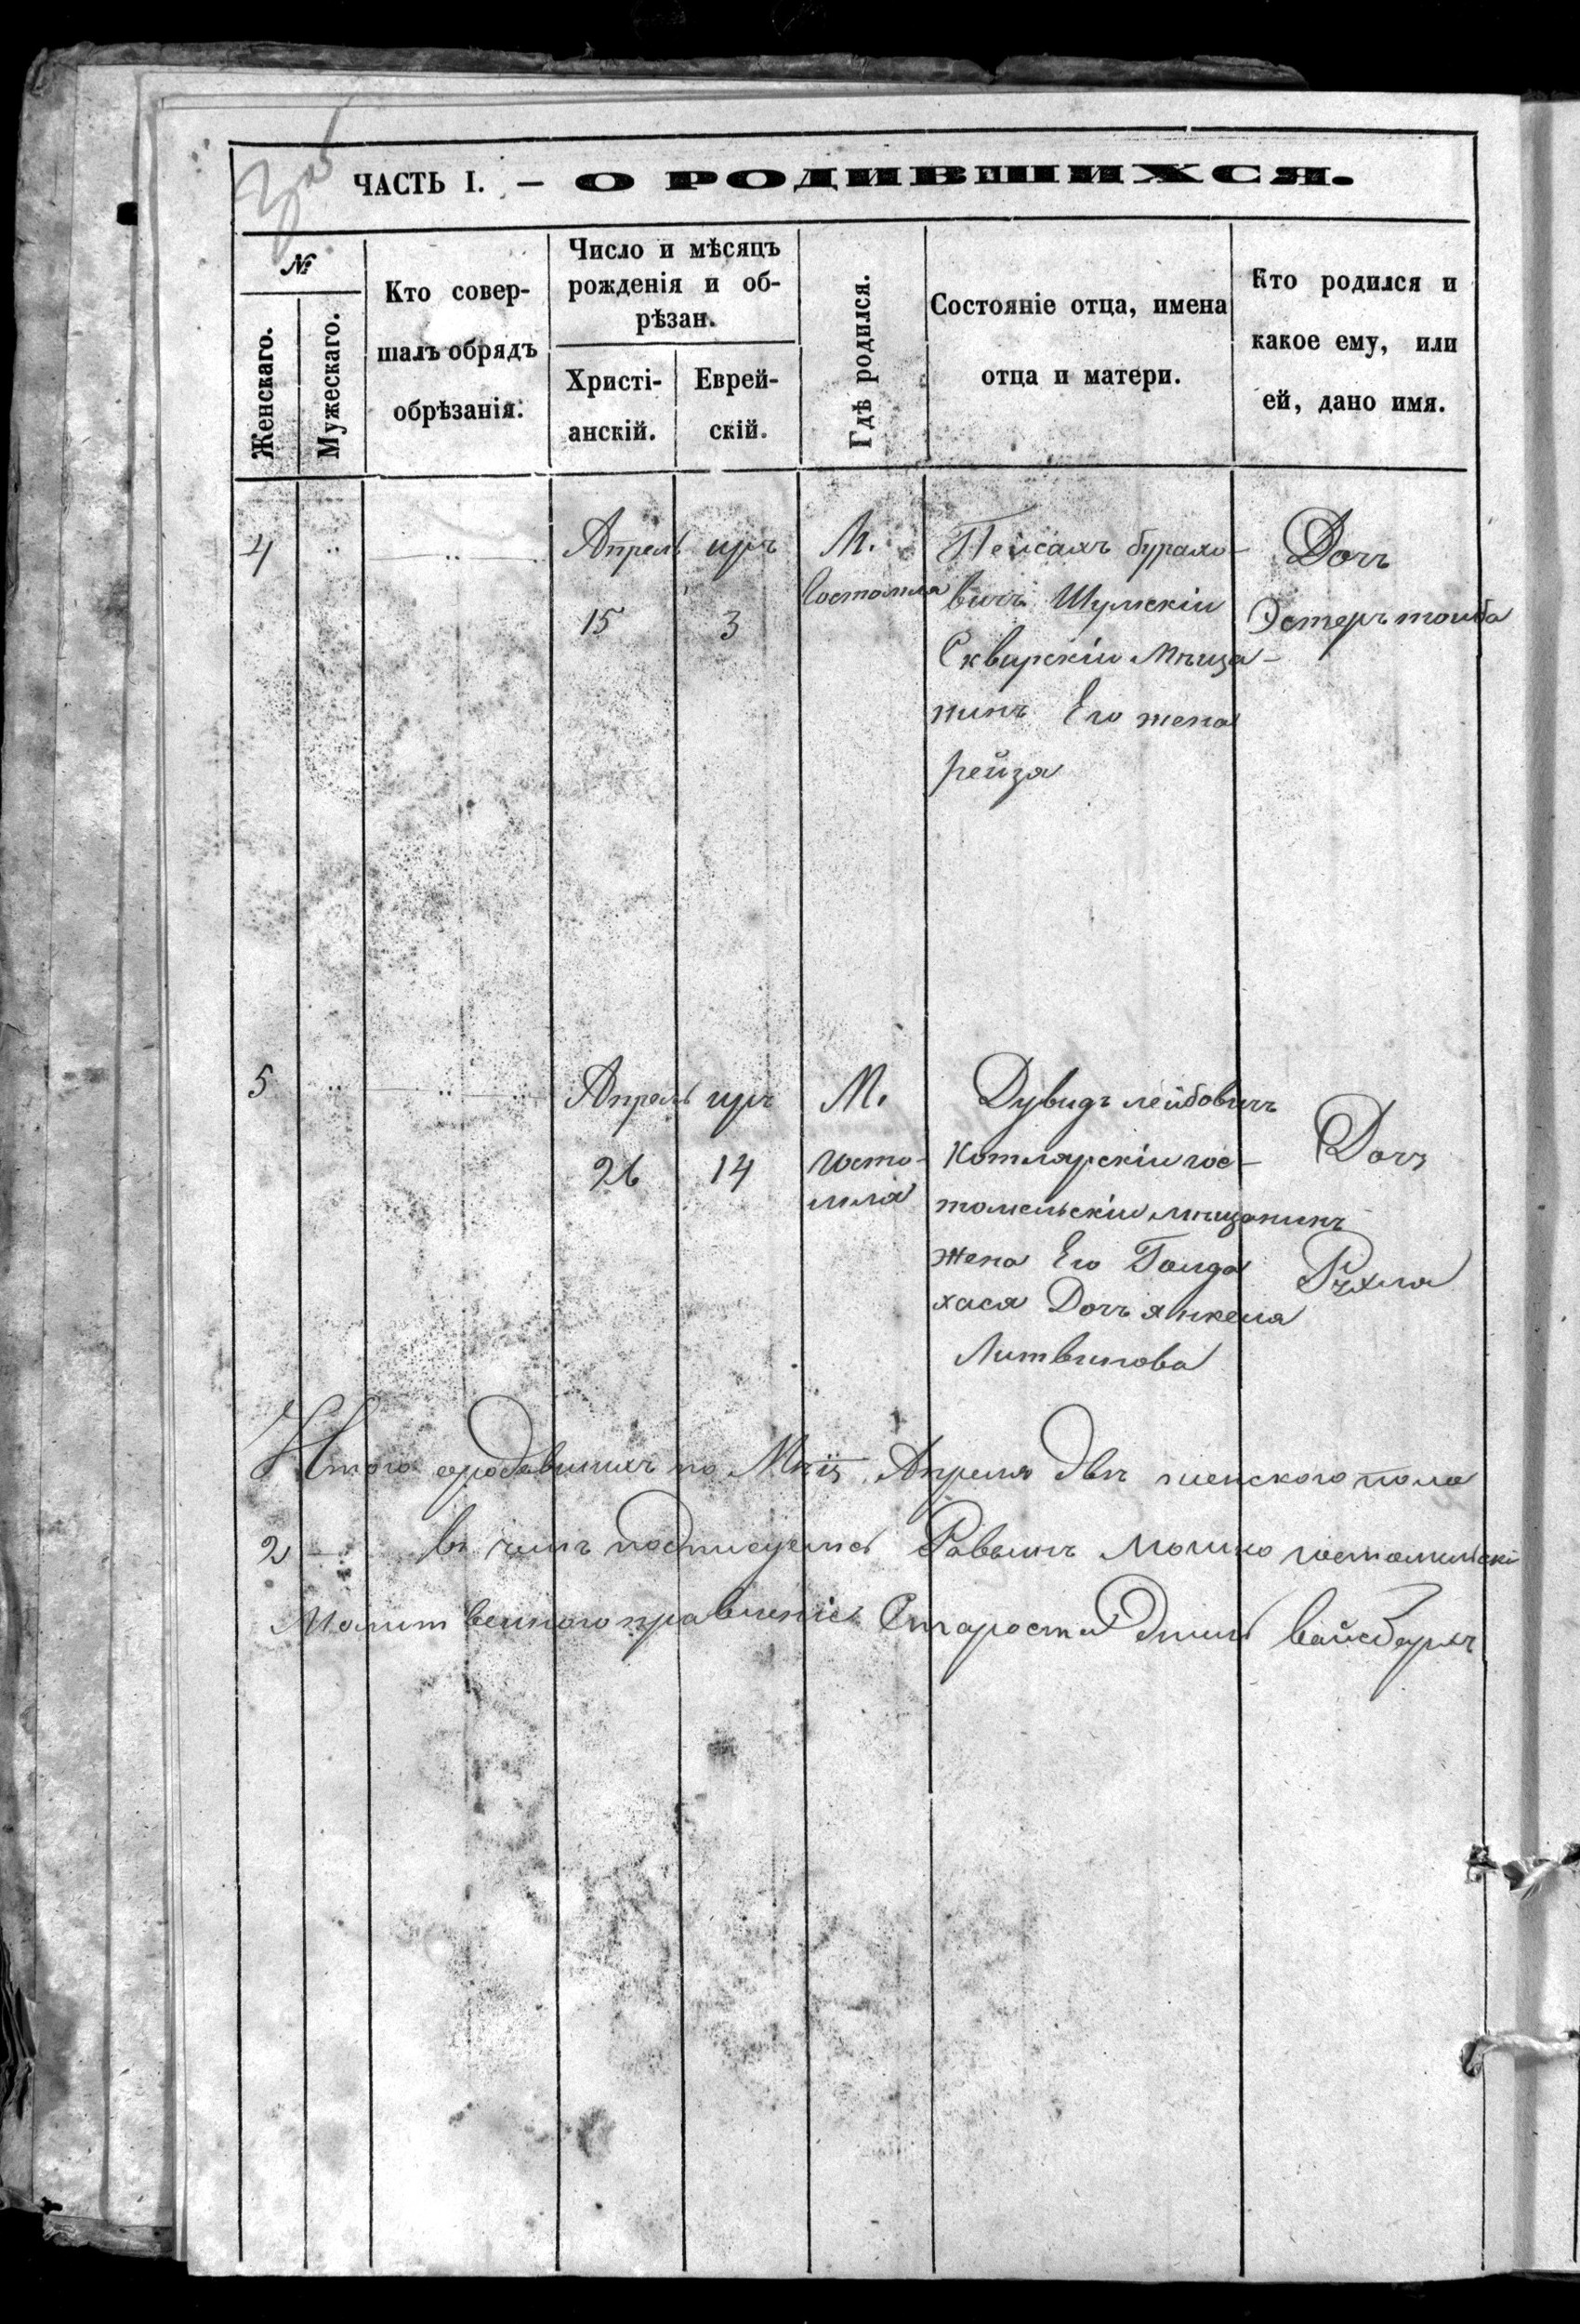 ЧАСТЬ I. — О РОДИВШИХСЯ.
№
Женскаго.
Мужескаго.
Кто совер-
шалъ обрядъ
обрѣзанія.
Число и мѣсяцъ
рожденія и об-
рѣзан.
Христі-
анскій.
Еврей-
скій.
Гдѣ родился.
Состояніе отца, имена
отца и матери.
Кто родился и
какое ему, или
ей, дано имя.
4
Апрель
15
иръ
3
М.
Гостомля
Пейсахъ
вичъ Шумскіи
Сквирскіи Мѣща-
нинъ Его жена
рейза
Дочъ
Эстеръ тоиба
5
Апрель
26
иръ
14
М.
Госто-
мля
Дувидъ лейбовичъ
Котлярскіи гос-
томельскіи мѣщанинъ
жена Его Голда
хася Дочъ янкеля
Литвинова
Дочъ
Рухля
Итого по Мцъ Апреля двѣ женского пола
2 — въ чемъ подписуемся Раввинъ Мошко гостомельскі
Молитвенного правленіе Староста вайсбергъ